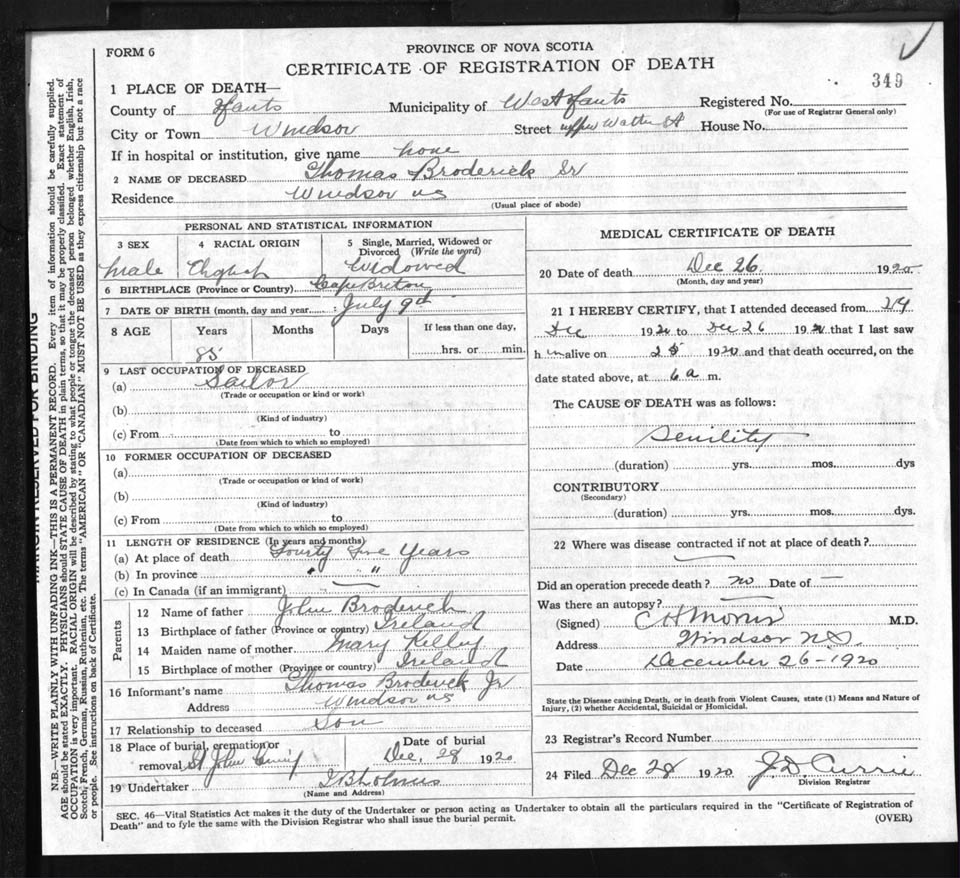 FORM 6
PROVINCE OF NOVA SCOTIA
CERTIFICATE OF REGISTRATION OF DEATH
349
1 PLACE OF DEATH—
County of Hants Municipality of West Hants Registered No.
(For use of Registrar General only)
City or Town Windsor Street upper Water St House No.
If in hospital or institution, give name none
2 NAME OF DECEASED Thomas Broderick Sr
Residence Windsor NS
(Usual place of abode)
PERSONAL AND STATISTICAL INFORMATION
3 SEX 4 RACIAL ORIGIN 5 Single, Married, Widowed or Divorced (Write the word)
Male English Widowed
6 BIRTHPLACE (Province or Country) Cape Briton
7 DATE OF BIRTH (month, day and year) July 9th
8 AGE Years Months Days If less than one day,
85 hrs. or min.
9 LAST OCCUPATION OF DECEASED
(a) Sailor
(Trade or occupation or kind or work)
(b)
(Kind of industry)
(c) From to
(Date from which to which so employed)
10 FORMER OCCUPATION OF DECEASED
(a)
(Trade or occupation or kind of work)
(b)
(Kind of industry)
(c) From to
(Date from which to which so employed)
11 LENGTH OF RESIDENCE (In years and months)
(a) At place of death Fourty five Years
(b) In province " "
(c) In Canada (if an immigrant)
Parents
12 Name of father John Broderick
13 Birthplace of father (Province or country) Ireland
14 Maiden name of mother Mary Kelley
15 Birthplace of mother (Province or country) Ireland
16 Informant's name Thomas Broderick Jr
Address Windsor NS
17 Relationship to deceased Son
18 Place of burial, cremation or removal St John Date of burial Dec, 28 1920
19 Undertaker
(Name and Address)
MEDICAL CERTIFICATE OF DEATH
20 Date of death Dec 26 1920
(Month, day and year)
21 I HEREBY CERTIFY, that I attended deceased from 24
Dec 1920 to Dec 26 1920 that I last saw
h im alive on 25 1920 and that death occurred, on the
date stated above, at 6 a m.
The CAUSE OF DEATH was as follows:
Senility
(duration) yrs. mos. dys
CONTRIBUTORY
(Secondary)
(duration) yrs. mos. dys.
22 Where was disease contracted if not at place of death?
Did an operation precede death? no Date of —
Was there an autopsy?
(Signed) C H Morris M.D.
Address Windsor N.S.
Date December 26-1920
State the Disease causing Death, or in death from Violent Causes, state (1) Means and Nature of
Injury, (2) whether Accidental, Suicidal or Homicidal.
23 Registrar's Record Number
24 Filed Dec 28 1920 J.D. Currie
Division Registrar
SEC. 46—Vital Statistics Act makes it the duty of the Undertaker or person acting as Undertaker to obtain all the particulars required in the "Certificate of Registration of
Death" and to fyle the same with the Division Registrar who shall issue the burial permit.
(OVER)
MARGIN RESERVED FOR BINDING
N.B.—WRITE PLAINLY WITH UNFADING INK—THIS IS A PERMANENT RECORD. Every item of information should be carefully supplied.
AGE should be stated EXACTLY. PHYSICIANS should STATE CAUSE OF DEATH in plain terms, so that it may be properly classified. Exact statement of
OCCUPATION is very important. RACIAL ORIGIN will be described by stating to what people or tongue the deceased person belonged whether English, Irish,
Scotch, French, German, Russian, Ruthenian, etc. The terms "AMERICAN" OR "CANADIAN" MUST NOT BE USED as they express citizenship but not a race
or people. See instructions on back of Certificate.